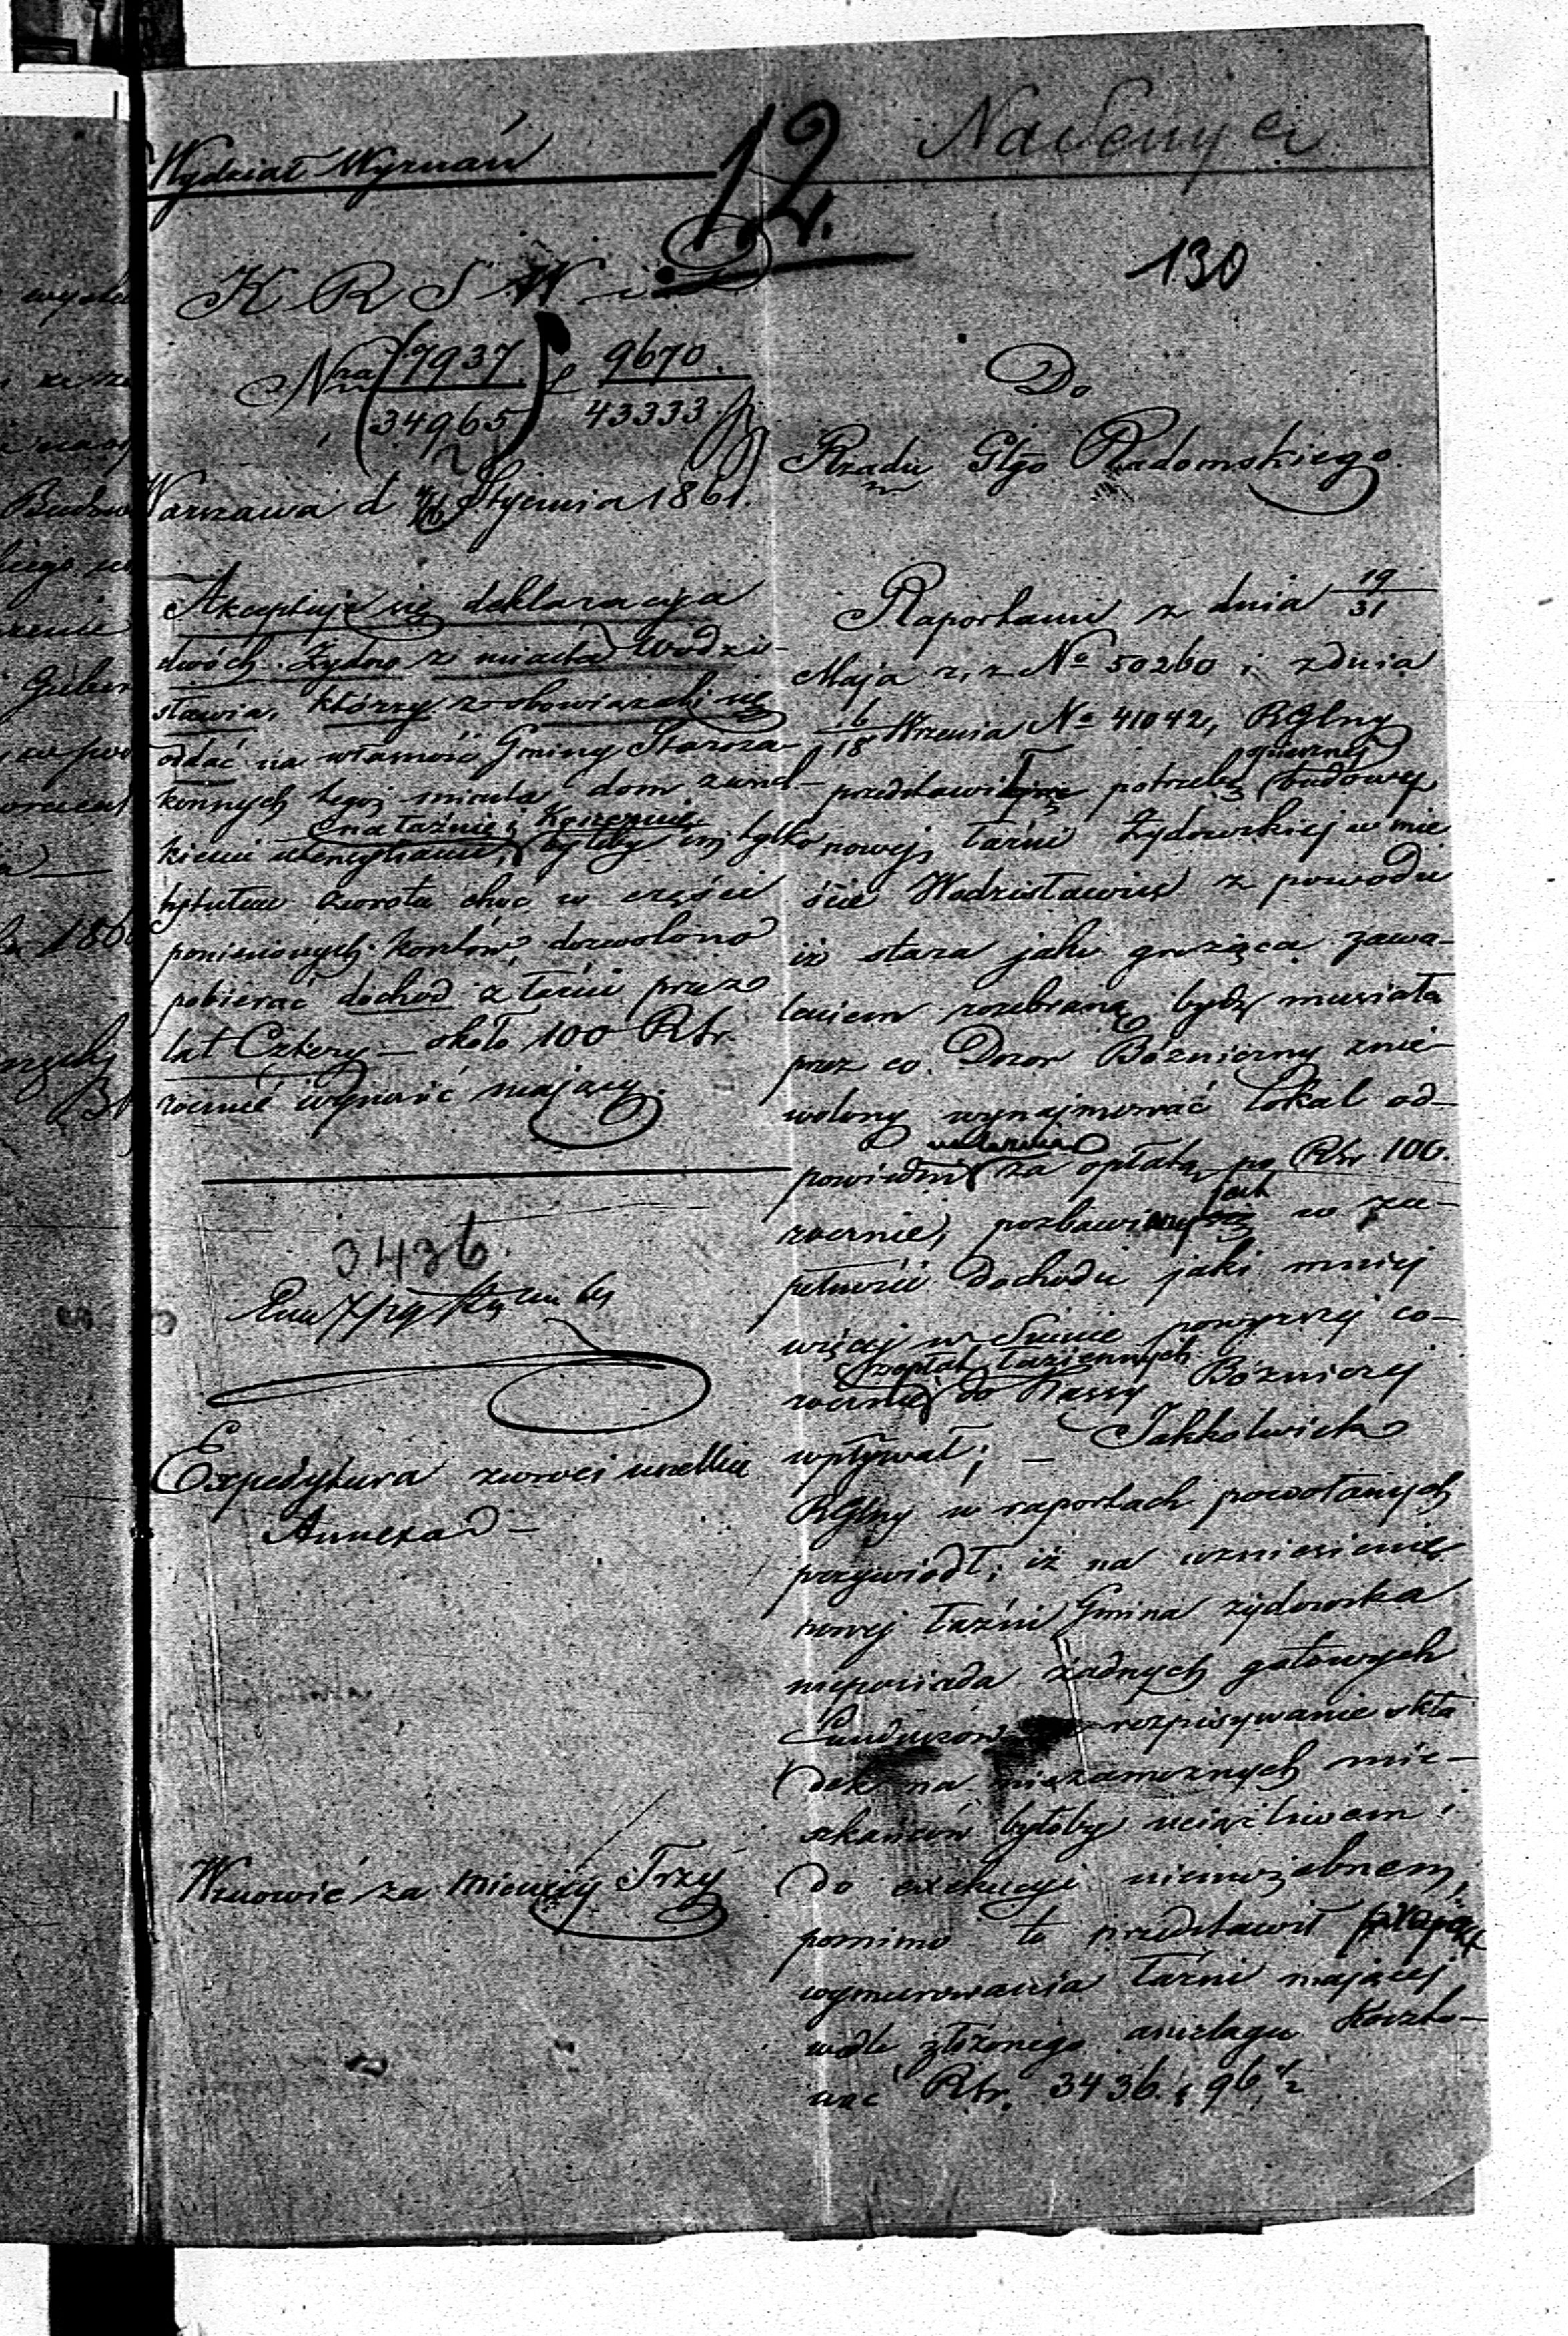 Wydział Wyznań
12.
130
K R S W i
Nra (7937/34965) 9670/43333
Warszawa d Stycznia 1861.
Akceptuje się deklaracyja
dwóch Żydów z miasta Wodzi-
sławia, którzy zobowiązali się
oddać na własność Gminy Staroza-
konnych tegoż miasta dom z wszel-
na łaźnię i Koszernię
kiemi utensyliami, byleby im tylko
tytułem zwrotu choć w części
poniesionych kosztów, dozwolono
pobierać dochod z łaźni przez
lat Cztery – około 100 Rsr.
rocznie wynosić mający.
3436.
Expedytura zwróci wszelkie
Annexa –
Wznowić za miesięcy Trzy
Do
Rządu Glgo Radomskiego.
Raportami z dnia 19/31
Maja r. z No 50260 i z dnia
16/18 Września No 41042, RGlny
przedstawił potrzebę budowy
nowej łaźni Żydowskiej w mie
ście Wodzisławiu z powodu
iż stara jako grożąca zawa-
leniem rozebraną być musiała
przez co Dozor Bóżniczny znie-
wolony wynajmować lokal od-
powiedni za opłatą po Rsr 100.
rocznie, pozbawiony jest w zu-
pełności dochodu jaki mniej
więcej w Summie powyższej co-
z opłat łaziennych
rocznie do Kassy Bóżniczej
wpływał; – Jakkolwiek
RGlny w raportach powołanych
przywiódł, iż na wzniesienie
nowej łaźni Gmina żydowska
nieposiada żadnych gotowych
Funduszów rozpisywanie skła
dek na niezamożnych mie-
szkańców byłoby uciążliwem i
do exekucyi niemożebnem,
pomimo to przedstawił projekt
wymurowania łaźni mającej
wedle złożonego anszlagu koszto-
wać Rsr. 3436 i 96 1/2